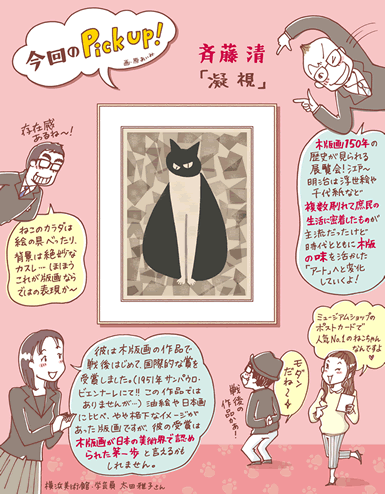 今回の Pick up!
画・原あいみ
斉藤 清
「凝 視」
存在感
あるね～!
木版画150年の
歴史が見られる
展覧会!江戸～
明治は浮世絵や
千代紙など
複数刷れて庶民の
生活に密着したものが
主流だったけど
時代とともに木版
の味を活かした
「アート」へと変化
していくよ!
ねこのカラダは
絵の具べったり、
背景は絶妙な
カスレ…ほほう
これが版画なら
ではの表現か～
彼は木版画の作品で
戦後はじめて、国際的な賞を
受賞しました。(1951年サンパウロ・
ビエンナーレにて!!この作品では
ありませんが…)油絵や日本画
にくらべ、やや格下なイメージが
あった版画ですが、彼の受賞は
木版画が日本の美術界で認め
られた第一歩と言えるかも
しれません。
横浜美術館・学芸員 太田雅子さん
戦後の
作品かぁ!
モダン
だね～
ミュージアムショップの
ポストカードで
人気No.1のねこちゃん
なんですよ